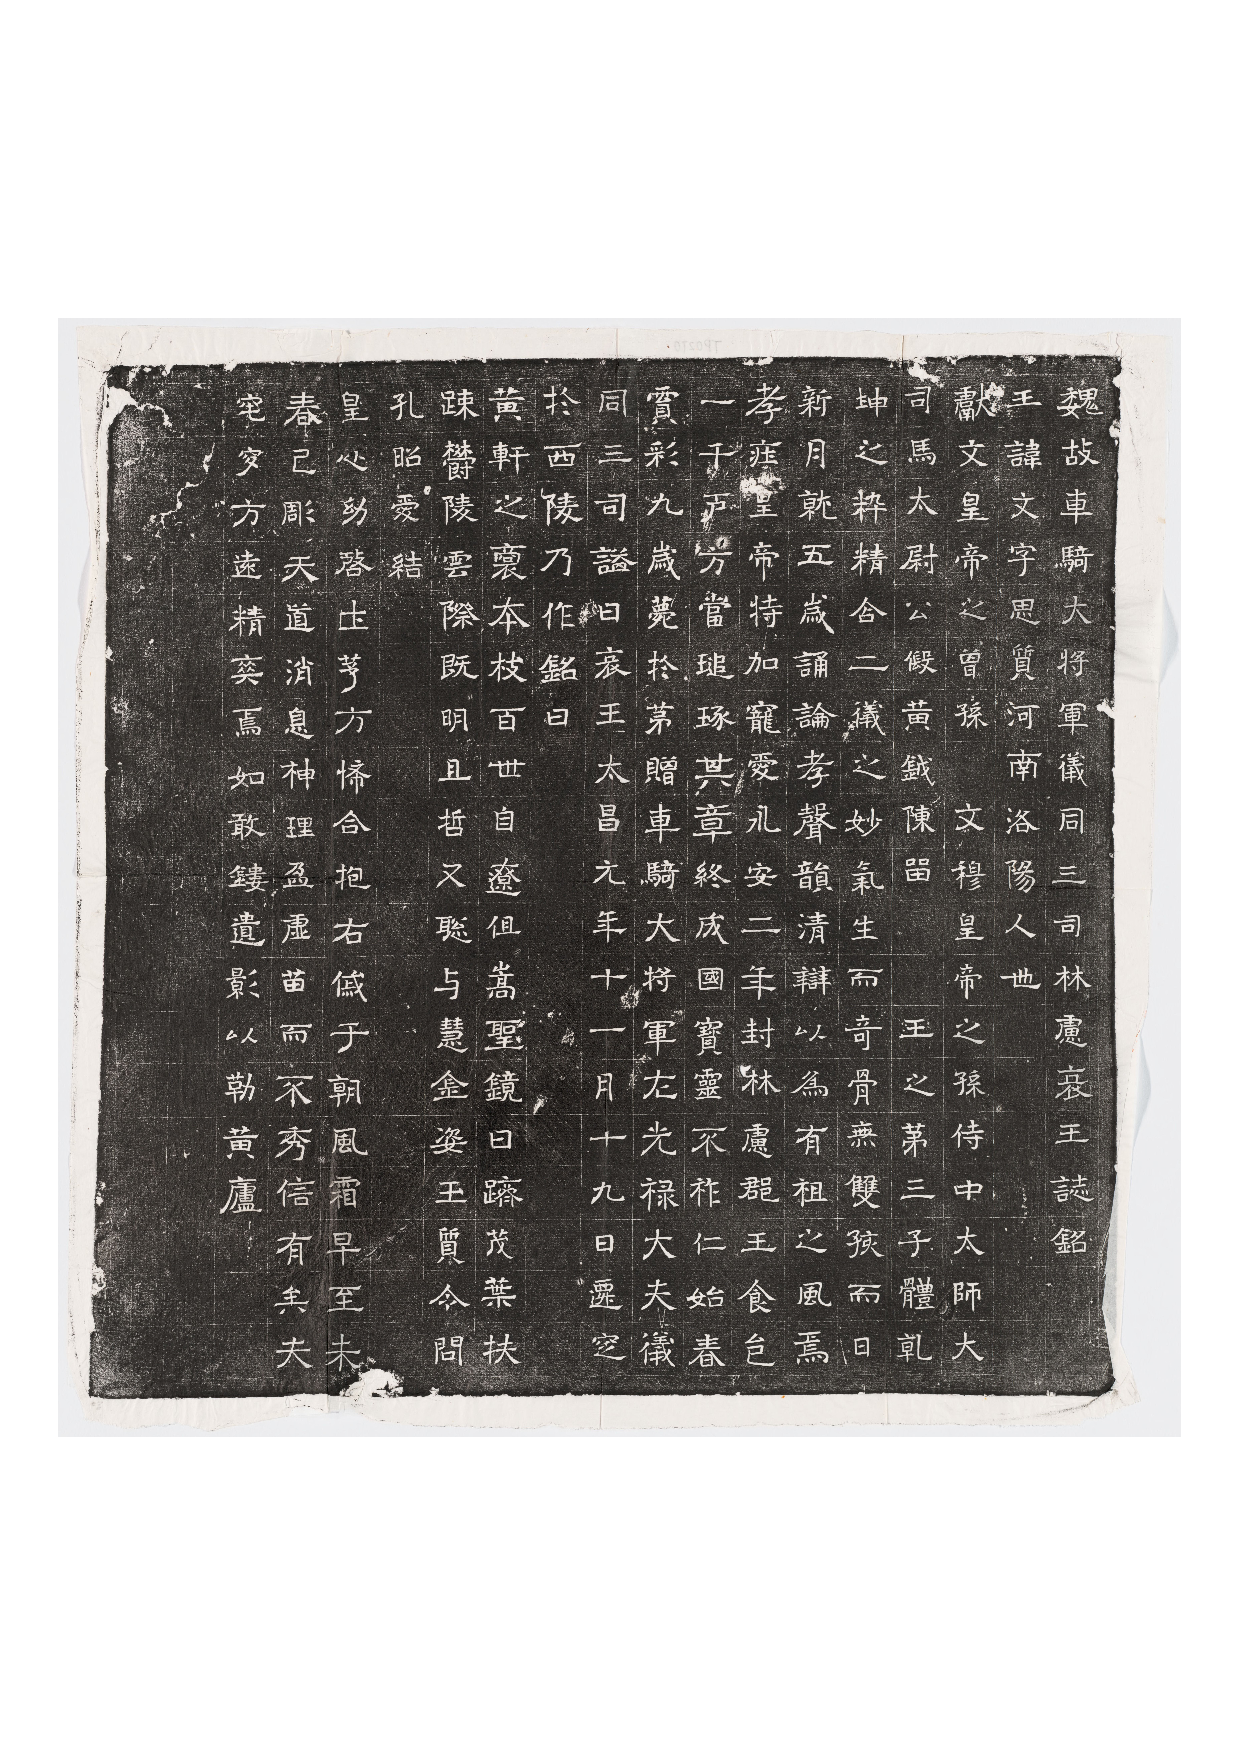 魏故車騎大將軍儀同三司林慮哀王誌銘
王諱文字思質河南洛陽人也
獻文皇帝之曾孫文穆皇帝之孫侍中太師大
司馬太尉公假黃鉞陳留王之第三子體乾
坤之粹精含二儀之妙氣生而奇骨無雙孩而日
新月就五歲誦論孝聲韻清辯以為有祖之風焉
孝莊皇帝特加寵愛永安二年封林慮郡王食邑
一千戶方當琢其章終成國寶靈不祚仁始春
賓彩九歲薨於第贈車騎大將軍左光祿大夫儀
同三司謚曰哀王太昌元年十一月十九日遷窆
於西陵乃作銘曰
黃軒之裔本枝百世自遼徂嵩聖鏡日躋茂葉扶
疎鬱陵雲際既明且哲又聡与慧金姿玉質令問
孔昭愛結
皇心幼啓土茅方悕合抱右戚于朝風霜早至未
春已彫天道消息神理盈虛苗而不秀信有矣夫
窀穸方遠精爽焉如敢鏤遺影以勒黃廬